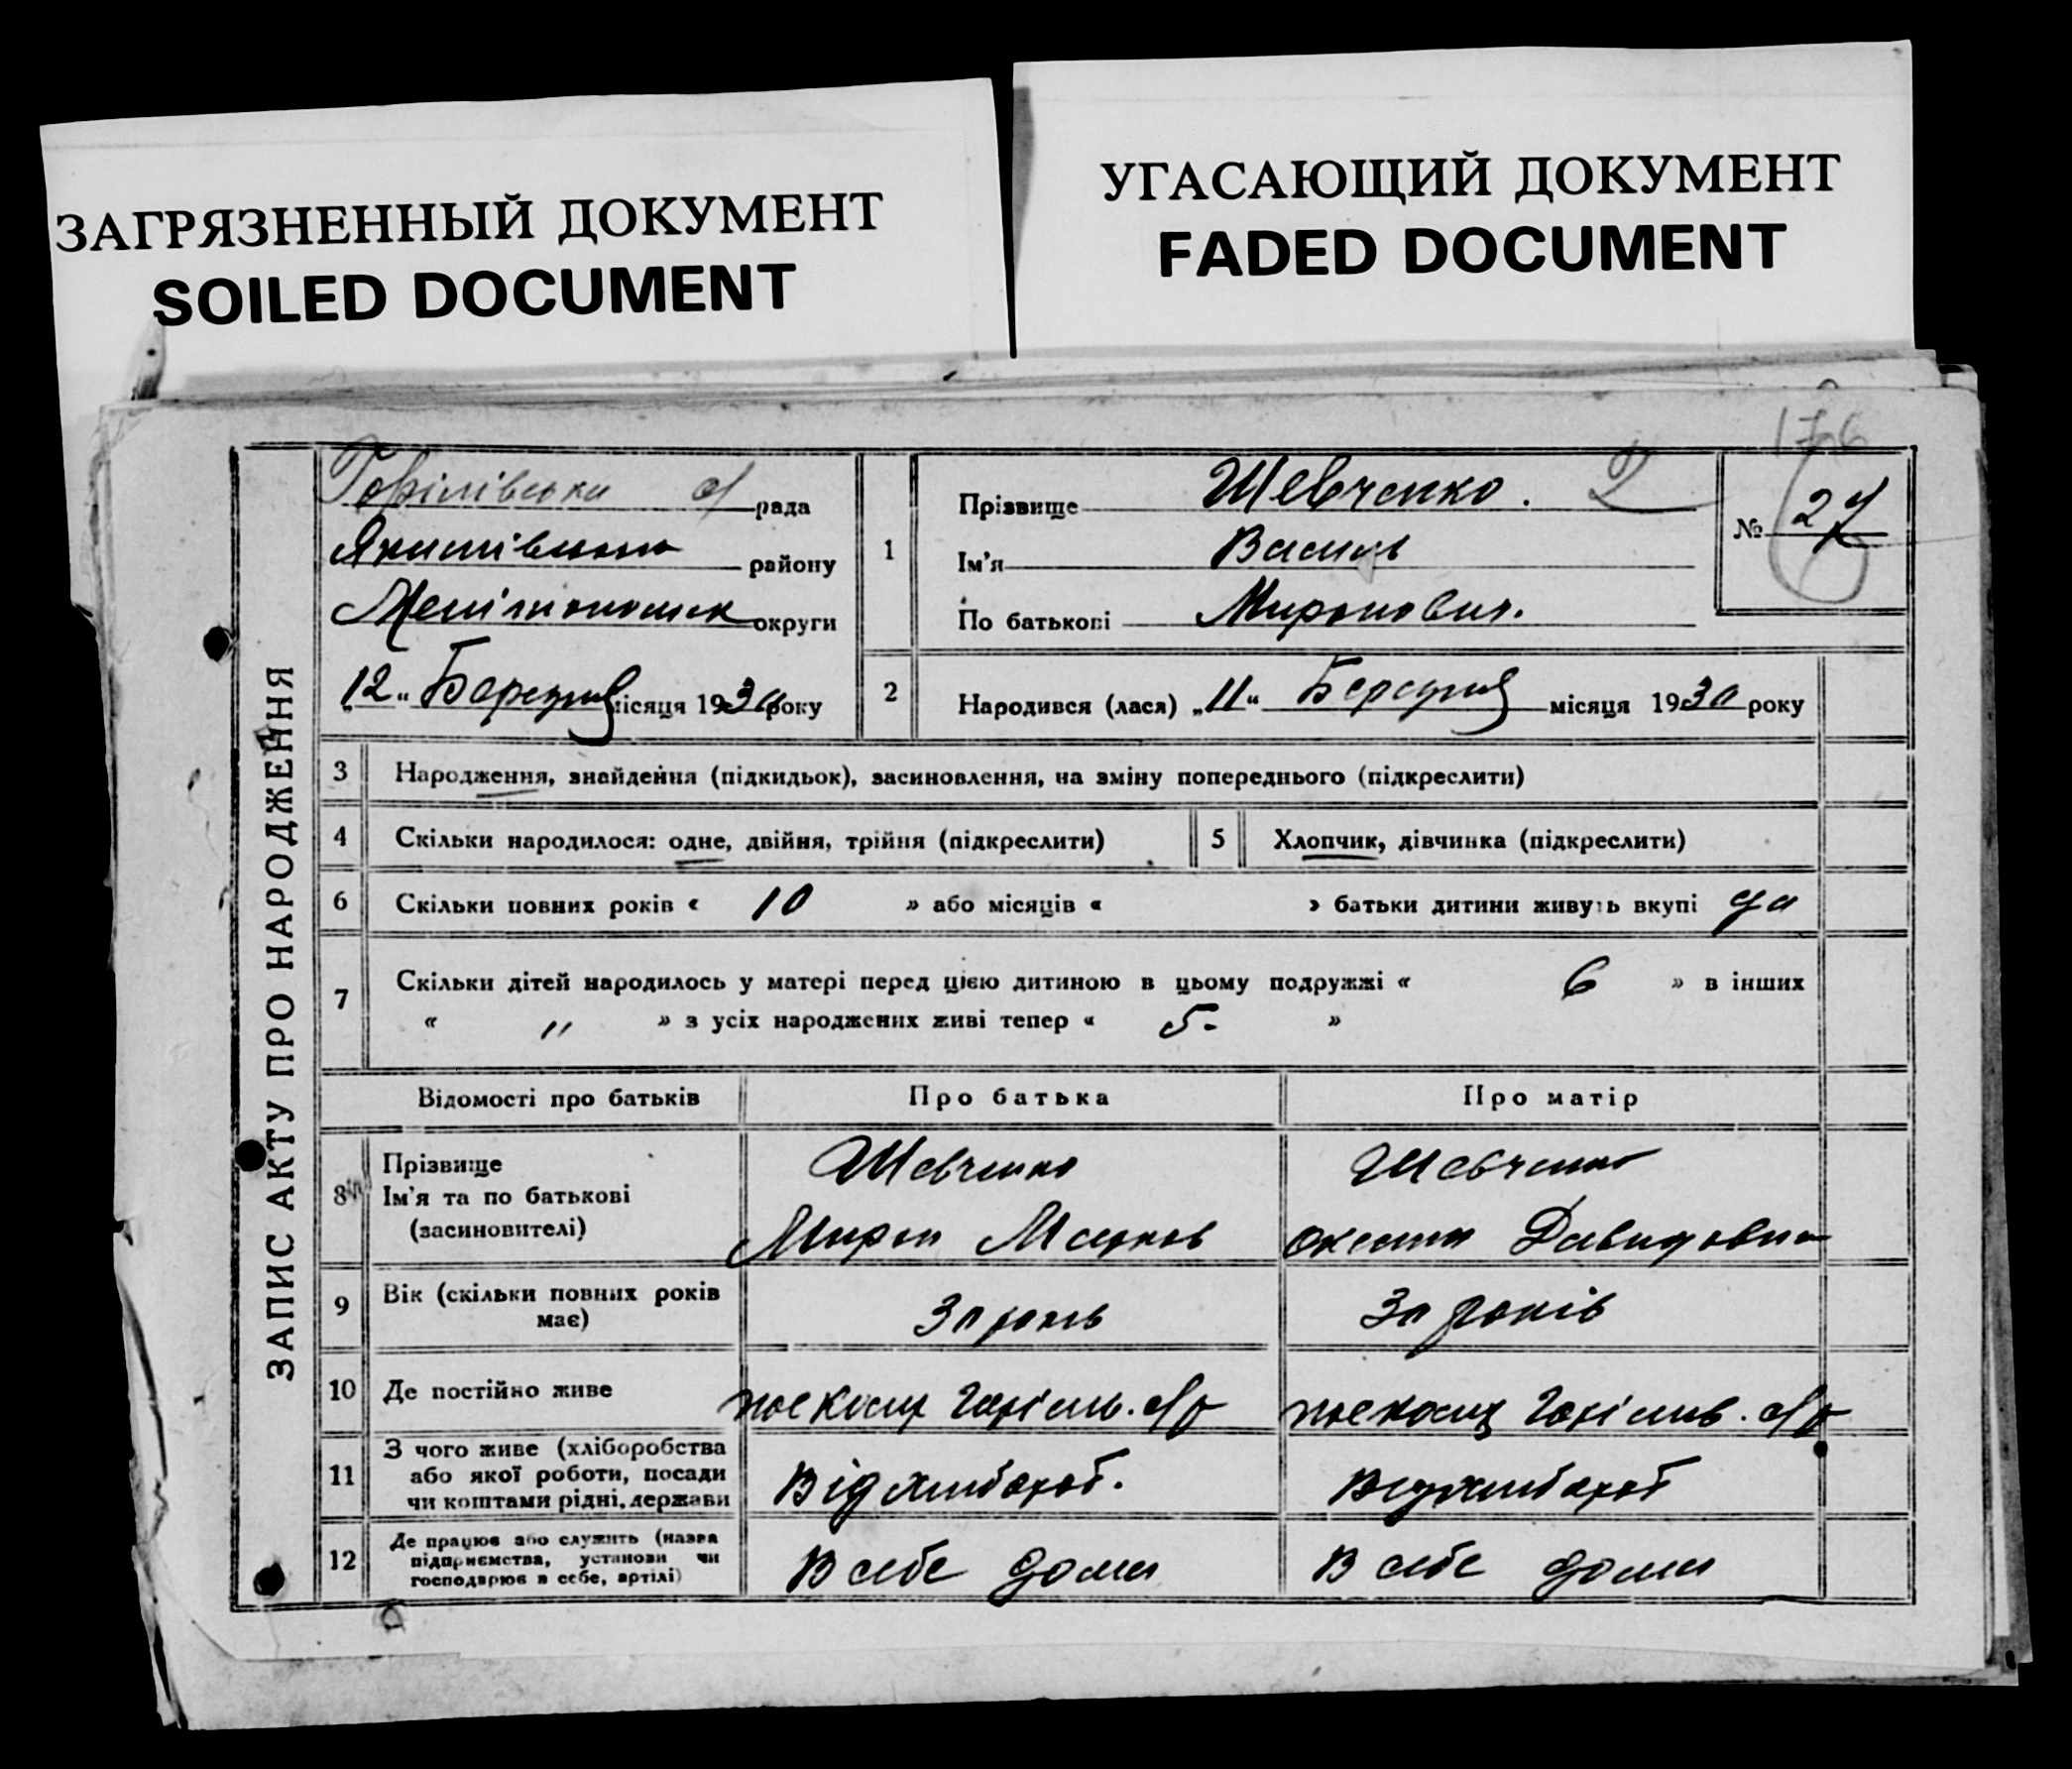 ЗАГРЯЗНЕННЫЙ ДОКУМЕНТ
SOILED DOCUMENT
УГАСАЮЩИЙ ДОКУМЕНТ
FADED DOCUMENT
176
ЗАПИС АКТУ ПРО НАРОДЖЕННЯ
рада
району
округи
"12" Березня місяця 1930 року
1 Прізвище Шевченко.
Ім'я Василь
По батькові Миронович.
№ 27
2 Народився (лася) "11" Березня місяця 1930 року
3 Народження, знайдення (підкидьок), засиновлення, на зміну попереднього (підкреслити)
4 Скільки народилося: одне, двійня, трійня (підкреслити)
5 Хлопчик, дівчинка (підкреслити)
6 Скільки повних років « 10 » або місяців « » батьки дитини живуть вкупі да
7 Скільки дітей народилось у матері перед цією дитиною в цьому подружжі « 6 » в інших
« " » з усіх народжених живі тепер « 5 - »
Відомості про батьків Про батька Про матір
8 Прізвище Шевченко Шевченко
Ім'я та по батькові
(засиновителі) Мирон Оксана Давидовна
9 Вік (скільки повних років
має) 30 років 30 років
10 Де постійно живе
11 З чого живе (хліборобства
або якої роботи, посади
чи коштами рідні, держави Від хлибороб. Від хлибороб
12 Де працює або служить (назва
підприємства, установи чи
господарює в себе, артілі) В себе дома В себе дома